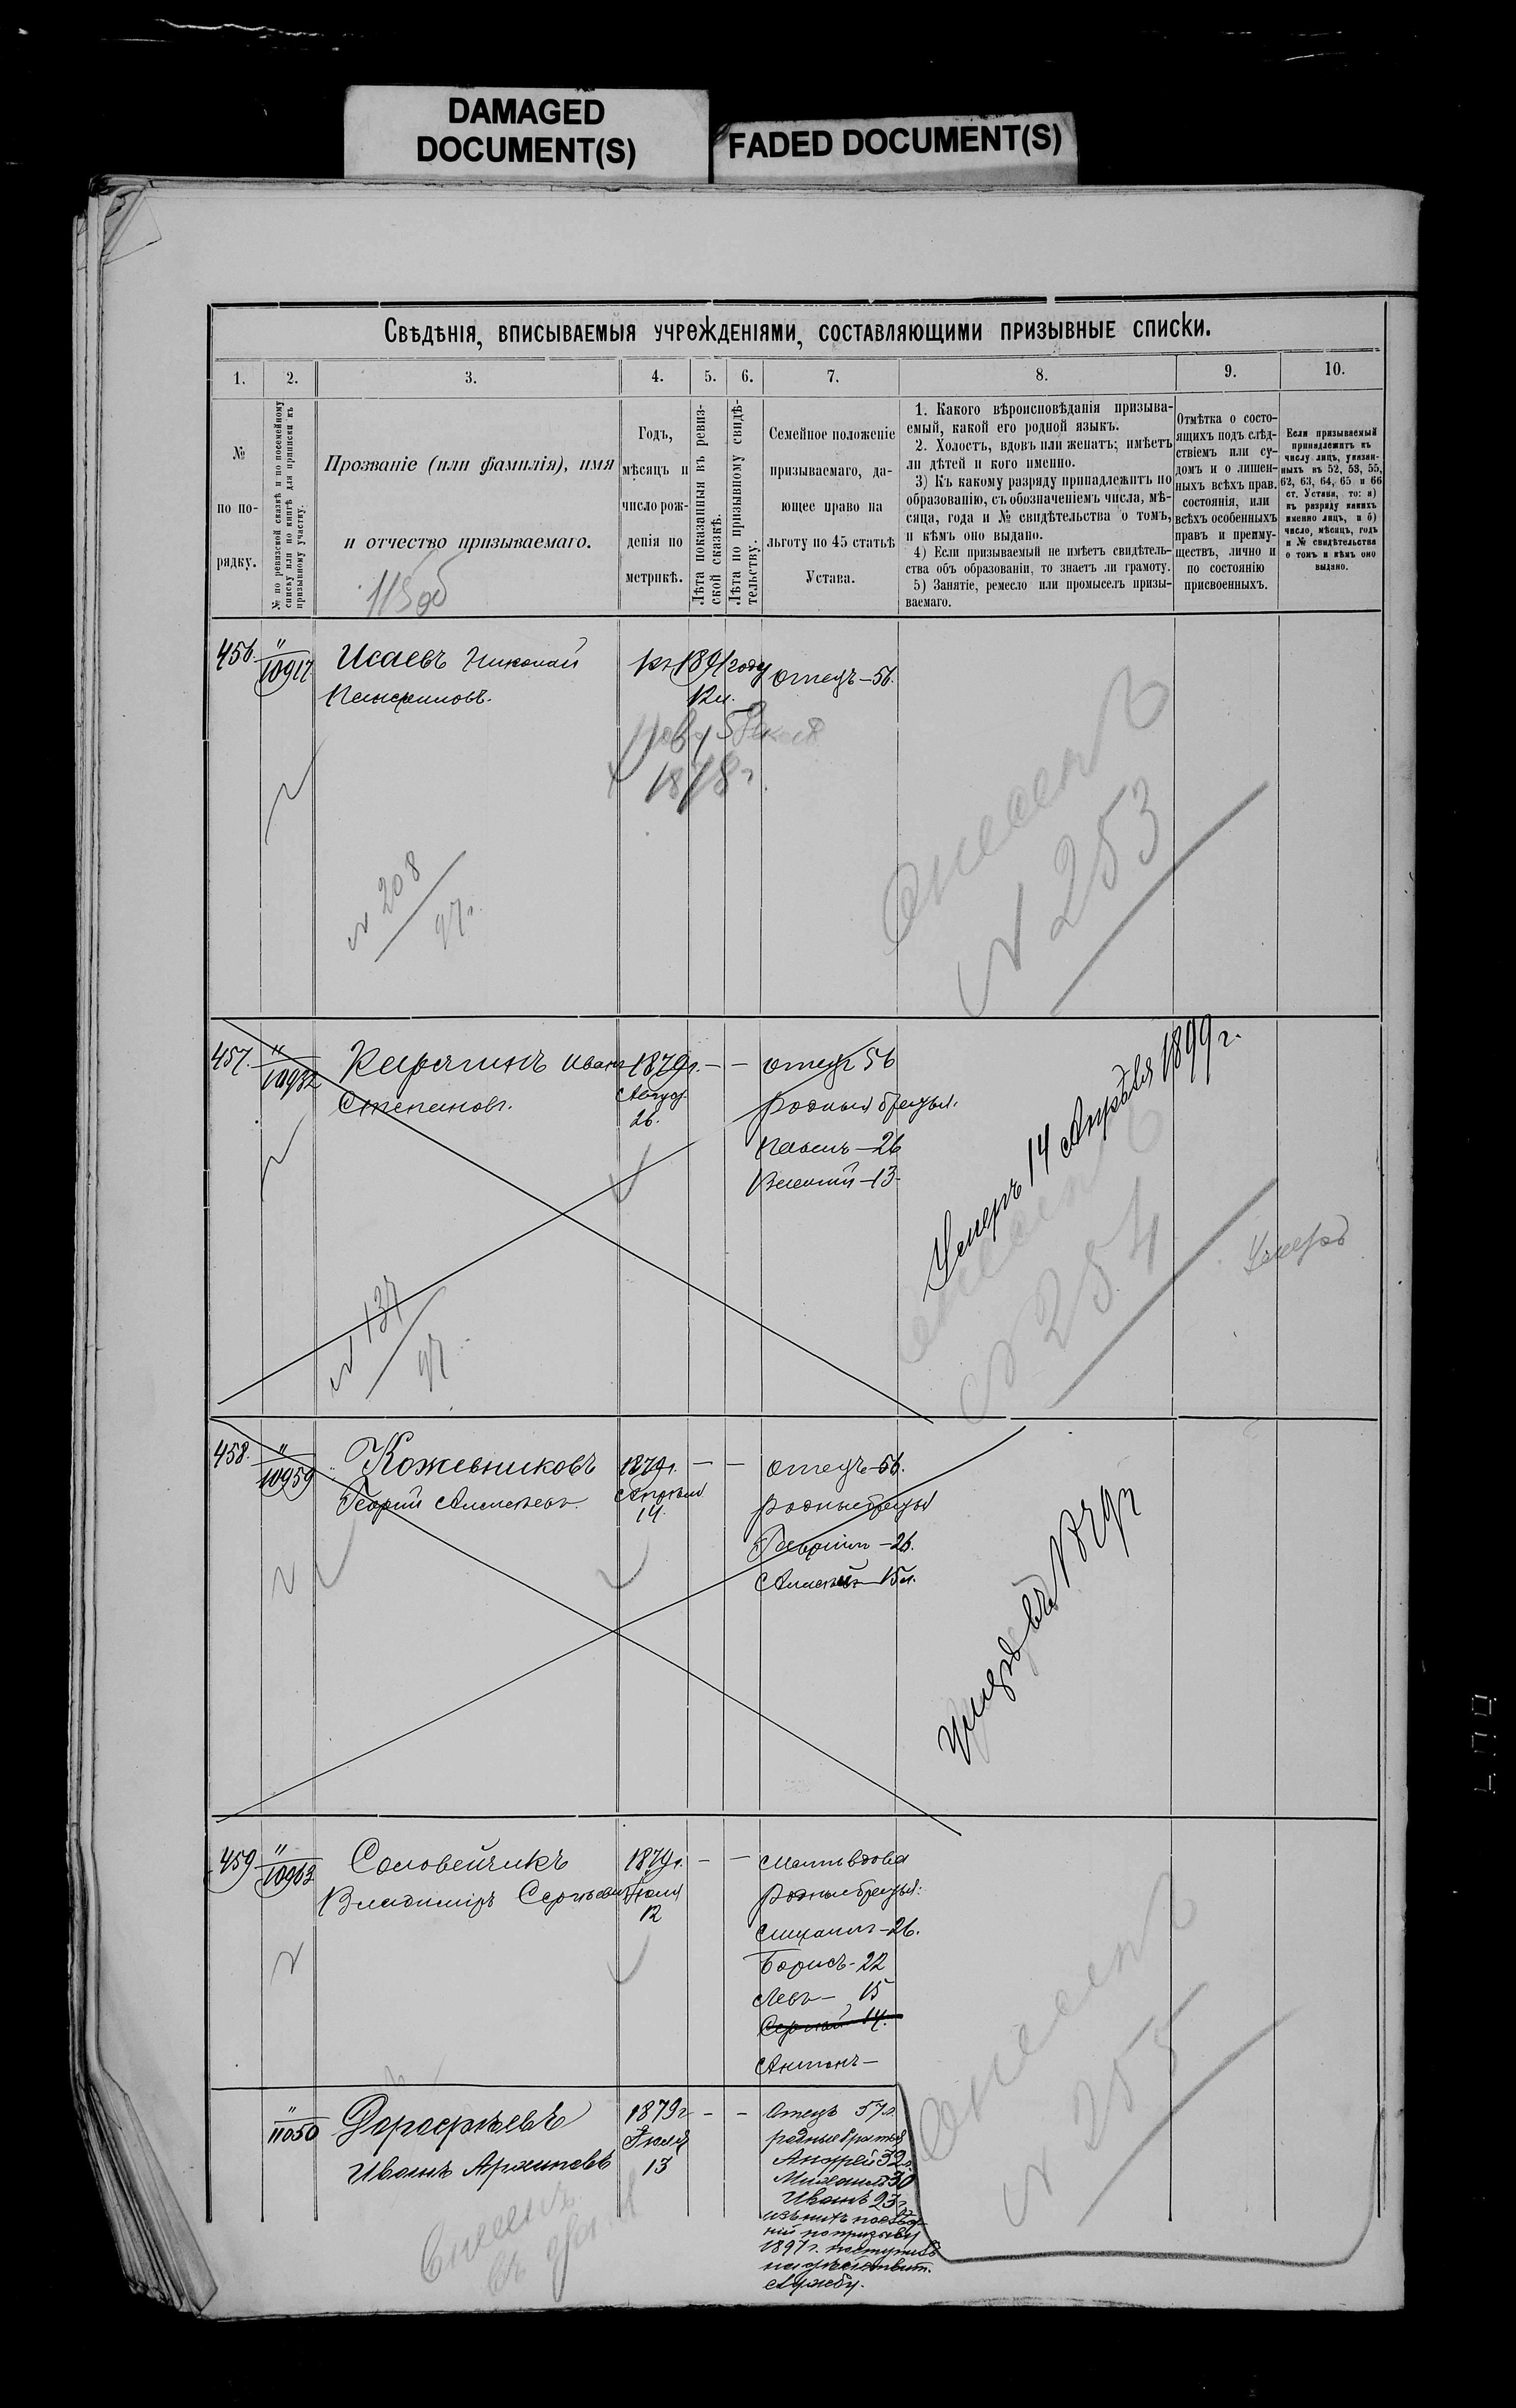 DAMAGED
DOCUMENT(S)
FADED DOCUMENT(S)
Свѣдѣнія, вписываемыя учрежденіями, составляющими призывные списки.
1. 2. 3. 4. 5. 6. 7. 8. 9. 10.
№
по по-
рядку.
№ по ревизской сказкѣ и по посемейному
списку или по книгѣ для приписки къ
призывному участку.
Прозваніе (или фамилія), имя
и отчество призываемаго.
Годъ,
мѣсяцъ и
число рож-
денія по
метрикѣ.
Лѣта показанныя въ ревиз-
ской сказкѣ.
Лѣта по призывному свидѣ-
тельству.
Семейное положеніе
призываемаго, да-
ющее право на
льготу по 45 статьѣ
Устава.
1. Какого вѣроисповѣданія призыва-
емый, какой его родной языкъ.
2. Холостъ, вдовъ или женатъ; имѣетъ
ли дѣтей и кого именно.
3) Къ какому разряду принадлежитъ по
образованію, съ обозначеніемъ числа, мѣ-
сяца, года и № свидѣтельства о томъ,
и кѣмъ оно выдано.
4) Если призываемый не имѣетъ свидѣтель-
ства объ образованіи, то знаетъ ли грамоту.
5) Занятіе, ремесло или промыселъ призы-
ваемаго.
Отмѣтка о состо-
ящихъ подъ слѣд-
ствіемъ или су-
домъ и о лишен-
ныхъ всѣхъ прав.
состоянія, или
всѣхъ особенныхъ
правъ и преиму-
ществъ, лично и
по состоянію
присвоенныхъ.
Если призываемый
принадлежитъ къ
числу лицъ, указан-
ныхъ въ 52, 53, 55,
62, 63, 64, 65 и 66
ст. Устава, то: а)
къ разряду какихъ
именно лицъ, и б)
число, мѣсяцъ, годъ
и № свидѣтельства
о томъ и кѣмъ оно
выдано.
456. " 10917 Исаевъ Николай
отецъ—56.
12 л.
1878 г
№ 208
97 г.
№ 253
457. " 10932 Карягинъ Иванъ 1879 г. — — отецъ 56
Степановъ. Август. родныя братья.
26.
Павелъ—26
Василій—13.
Умеръ 14 Апрѣля 1899 г.
№ 254
Умеръ
№ 137
97
458. " 10959 Кожевниковъ 1879 г. — — отецъ—56.
Георгій Алексѣевъ. Апрѣля родные братья
14.
26.
Алексѣй—15 л.
459 " 10963 Соловейчикъ 1879 г. — — Мать вдова
Владиміръ Сергѣевъ Іюля родные братья:
12
Михаилъ—26.
Борисъ—22
Левъ— 15
Сергѣй 14.
Антонъ—
№ 255
" 11050 Дорофѣевъ 1879 г — — Отецъ 57 л.
Іюля родные братья
Иванъ Архиповъ 13 Андрей 32 л.
Михаилъ 30
Иванъ 23 г.
изъ нихъ послѣд-
ній по призыву
1897 г. поступилъ
на дѣйствит.
службу.